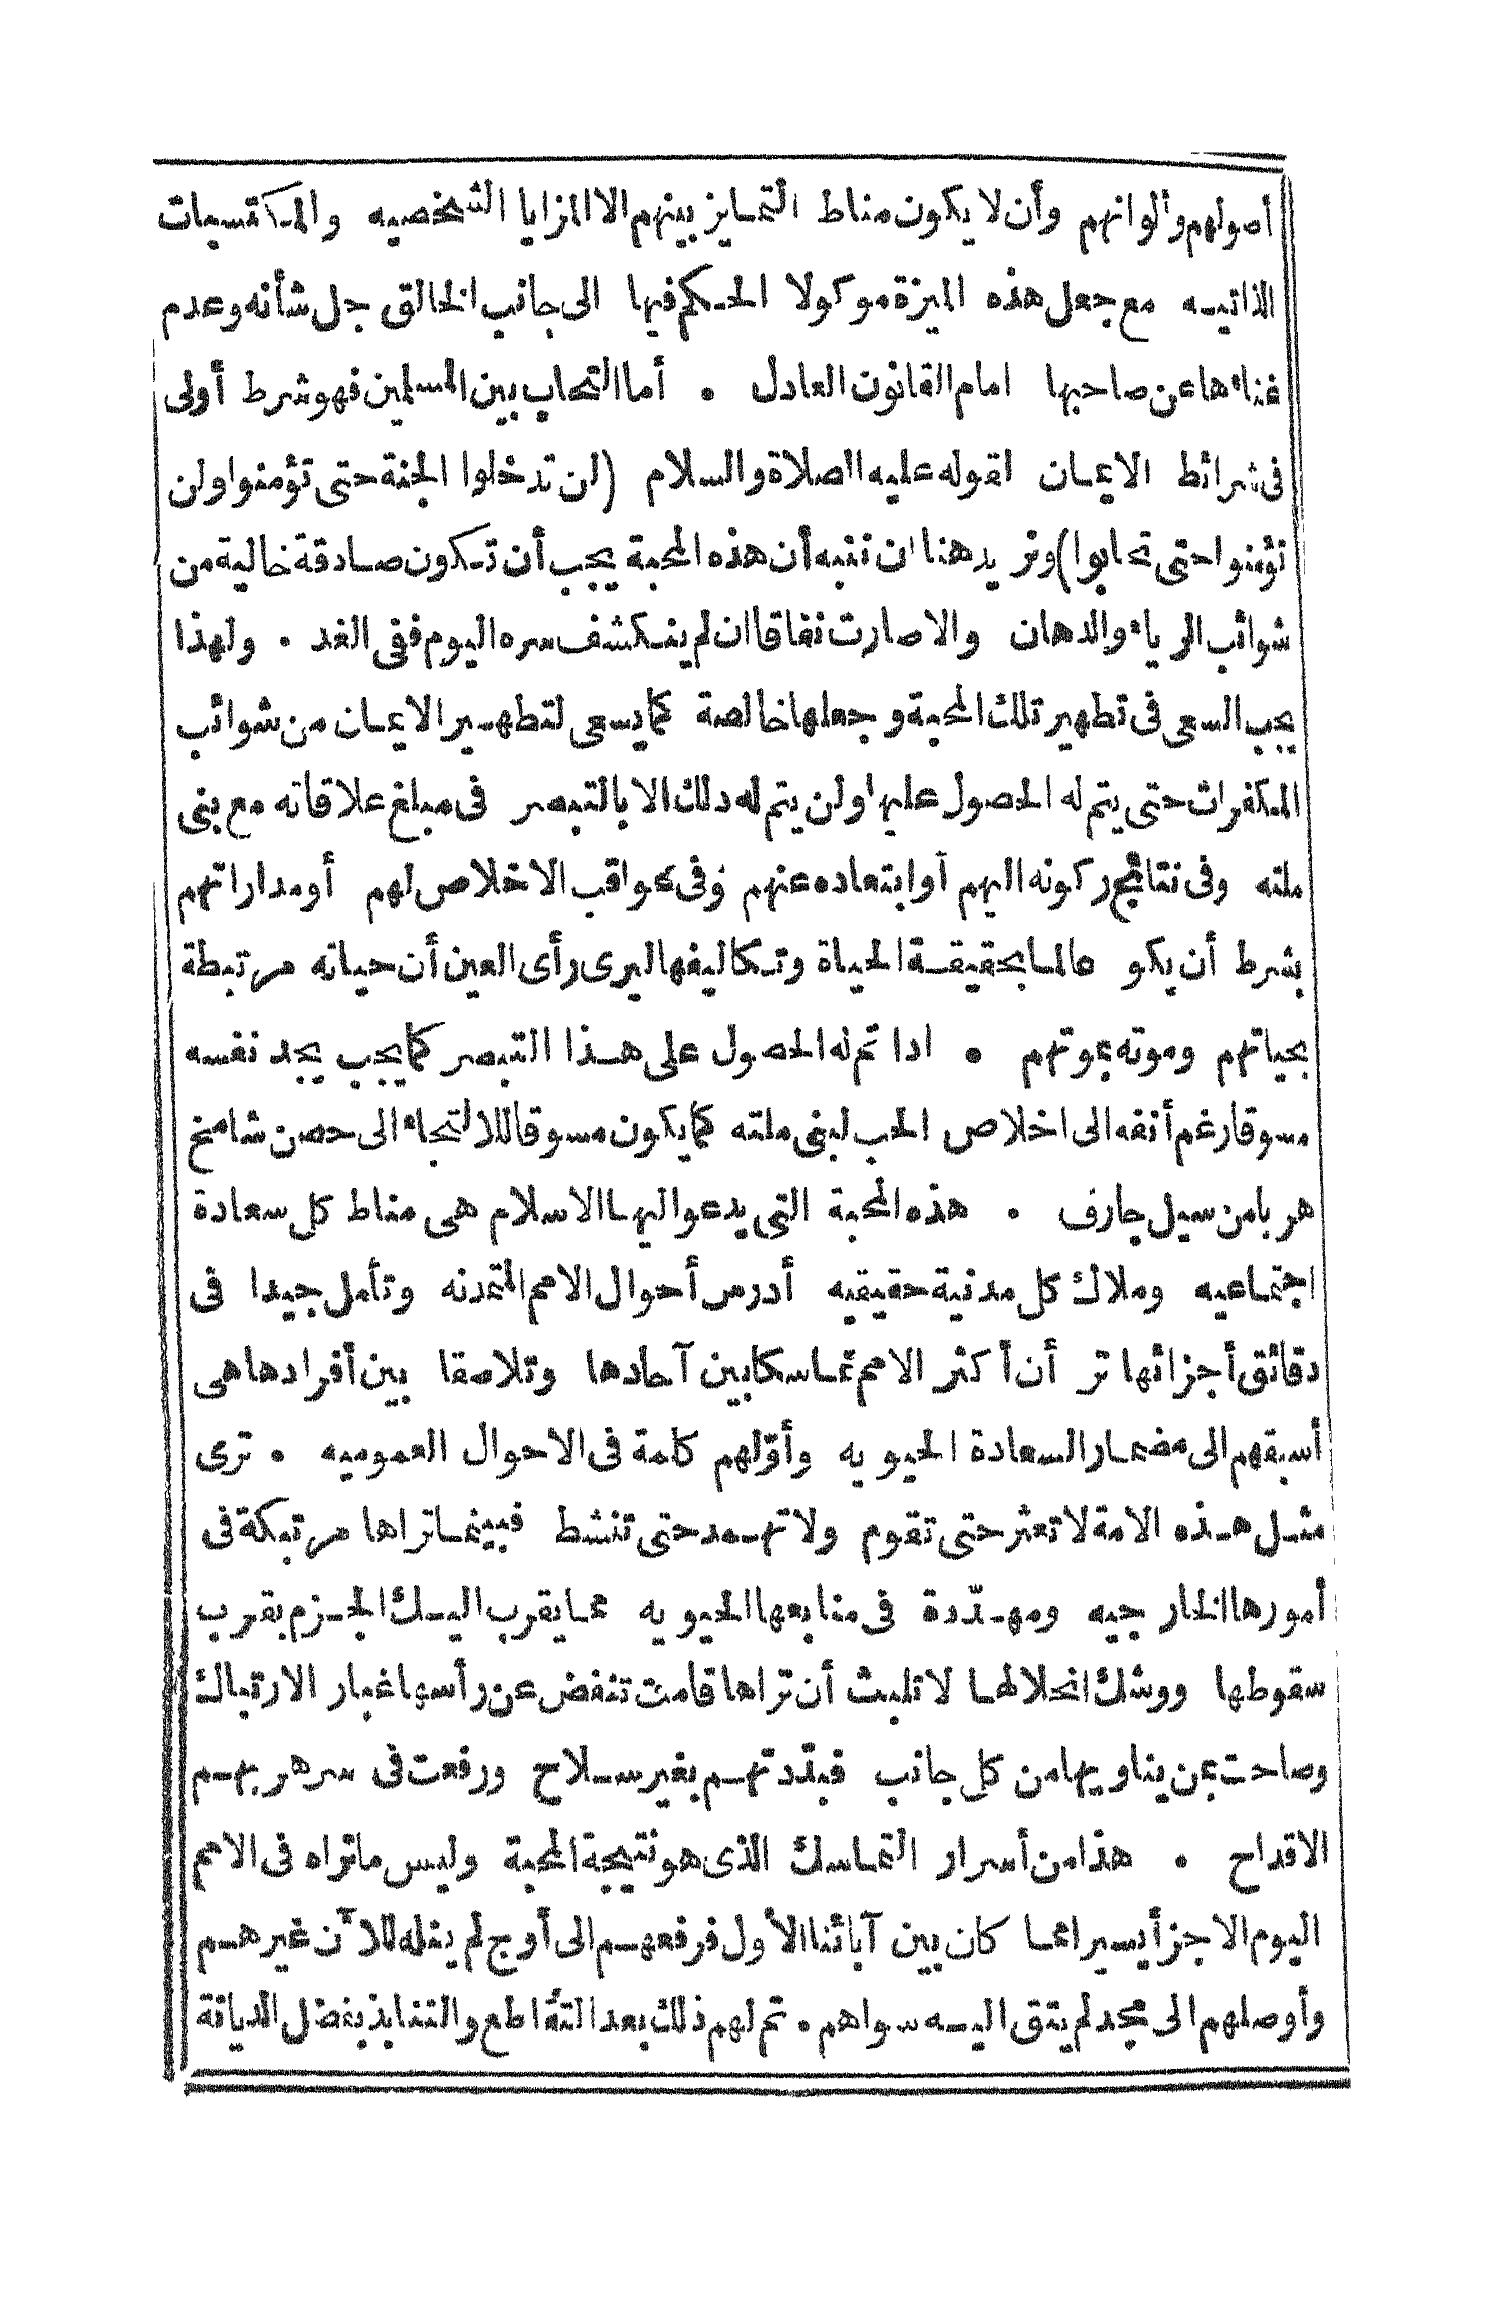 أصولهم وألوانهم وأن لا يكون مناط التمايز بينهم الا المزايا الشخصيه والمكتسبات
الذاتيه مع جعل هذه الميزة موكولا الحكم فيها الى جانب الخالق جل شأنه وعدم
غناءها عن صاحبها امام القانون العادل . أما التحاب بين المسلمين فهو شرط أولى
فى شرائط الايمان لقوله عليه الصلاة والسلام (لن تدخلوا الجنة حتى تؤمنوا ولن
تؤمنوا حتى تحابوا) ونريد هنا ان ننبه أن هذه المحبة يجب أن تكون صادقة خالية من
شوائب الرياء والدهان والا صارت نفاقا ان لم ينكشف سره اليوم ففى الغد . ولهذا
يجب السعى فى تطهير تلك المحبة وجعلها خالصة كما يسعى لتطهير الايمان من شوائب
المكفرات حتى يتم له الحصول عليها ولن يتم له ذلك الا بالتبصر فى مبلغ علاقاته مع بنى
ملته وفى نتائج ركونه اليهم أو ابتعاده عنهم وفى عواقب الاخلاص لهم أو مداراتهم
بشرط أن يكو عالما بحقيقة الحياة وتكاليفها ليرى رأى العين أن حياته مرتبطة
بحياتهم وموته بموتهم . اذا تم له الحصول على هذا التبصر كما يجب يجد نفسه
مسوقا رغم أنفه الى اخلاص الحب لبنى ملته كما يكون مسوقا للالتجاء الى حصن شامخ
هربا من سيل جارف . هذه المحبة التى يدعو اليها الاسلام هى مناط كل سعادة
اجتماعيه وملاك كل مدنية حقيقيه أدرس أحوال الامم المتمدنه وتأمل جيدا فى
دقائق أجزائها تر أن أكثر الامم تماسكا بين آحادها وتلاصقا بين أفرادها هى
أسبقهم الى مضمار السعادة الحيويه وأوّلهم كلمة فى الاحوال العموميه . ترى
مثل هذه الامة لا تعثر حتى تقوم ولا تهمد حتى تنشط فبينما تراها مرتبكة فى
أمورها الخارجيه ومهدّدة فى منابعها الحيويه مما يقرب اليك الجزم بقرب
سقوطها ووشك انحلالها لا تلبث أن تراها قامت تنفض عن رأسها غبار الارتباك
وصاحت بمن يناويها من كل جانب فبدّدتهم بغير سلاح ورفعت فى سر هربهم
الاقداح . هذا من أسرار التماسك الذى هو نتيجة المحبة وليس ما تراه فى الامم
اليوم الا جزأ يسيرا مما كان بين آبائنا الأول فرفعهم الى أوج لم ينله للآن غيرهم
وأوصلهم الى مجد لم يتق اليه سواهم . تم لهم ذلك بعد التقاطع والتنابذ بفضل الديانة